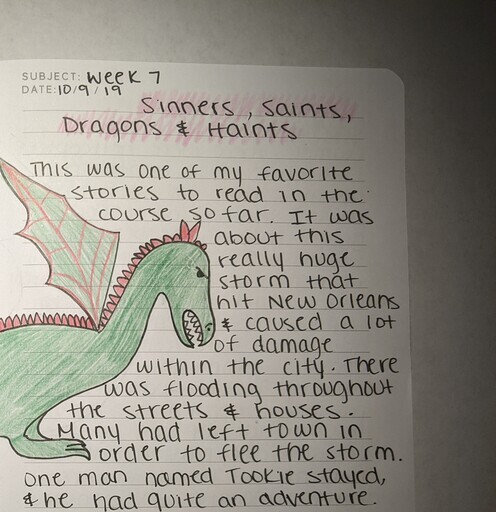 SUBJECT: Week 7
DATE: 10/9/19
Sinners, Saints,
Dragons & Haints
This was one of my favorite
stories to read in the
course so far. It was
about this
really huge
storm that
hit New Orleans
& caused a lot
of damage
within the city. There
was flooding throughout
the streets & houses.
Many had left town in
order to flee the storm.
One man named Tookie stayed,
& he had quite an adventure.